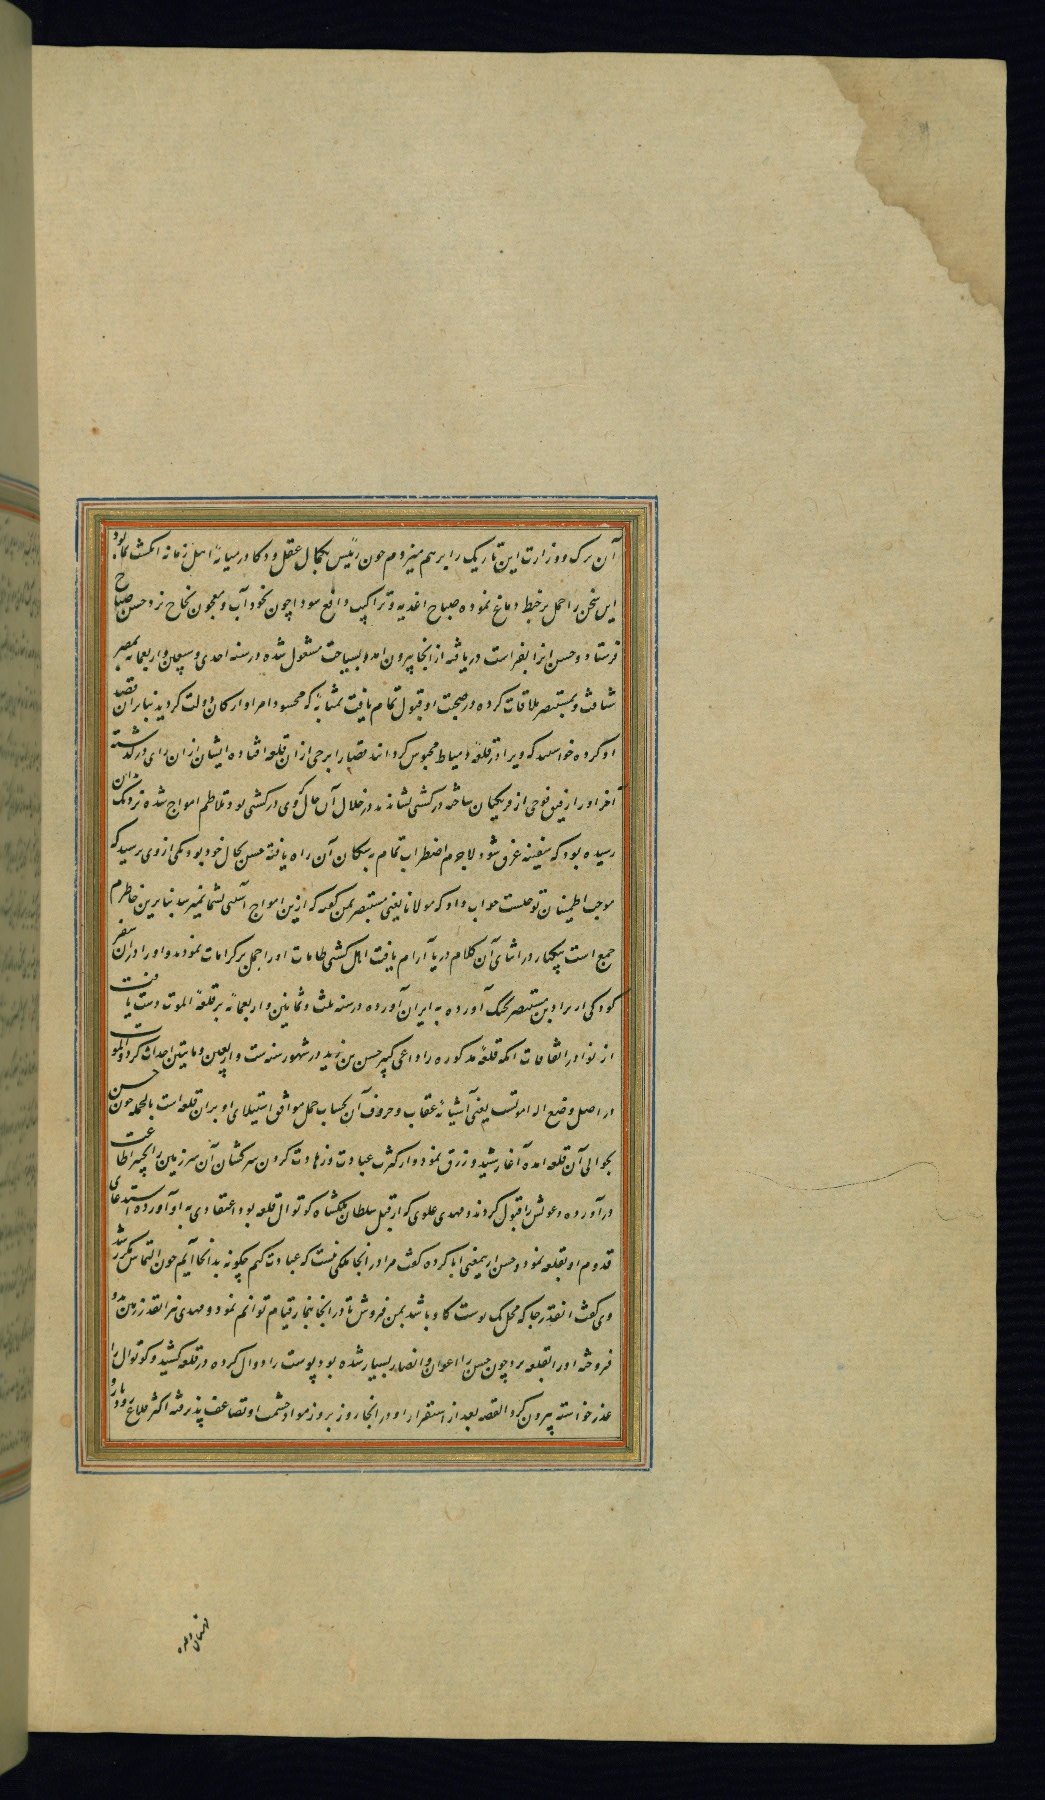 آن ترک و وزارت این تاریک را برهم میزدم چون رئیس بکمال عقل و ذکا در میانهٔ اهل زمانه انگشت نما بود
این سخن را حمل بر خبط دماغ نموده صباح اغذیه و تراکیب دافع سودا چون نخود آب و معجون نجاح نزد حسن صباح
فرستاد و حسن انرا بفراست دریافته از انجا بیرون امد و بسیاحت مشغول شده در سنه احدی و سبعین و اربعمائه بمصر
شتافت و بمستنصر ملاقات کرده در صحبت او قبول تمام یافت بمثابهٔ که محسود امرا و ارکان دولت کردید بنابران قصد
او کرده خواستند که ویرا در قلعهٔ دمیاط محبوس کردانند قضا را برجی از ان قلعه افتاده ایشان از ان رای در کذشته
آخر او را رفیق فوجی از فرنکیان ساخته در کشتی نشاندند در خلال آن حال که وی در کشتی بود تلاطم امواج شده نزدیک بدان
رسیده بود که سفینه غرق شود لاجرم اضطراب تمام به سکان آن راه یافته حسن بحال خود بود یکی از وی پرسید که
موجب اطمینان تو چیست جواب داد که مولانا یعنی مستنصر بمن گفته که ازین امواج آسیبی بشما نمیرسد بنابرین خاطرم
جمع است بیکبار در اثنای آن کلام دریا آرام یافت اهل کشتی طامات او را حمل بر کرامات نمودند و او را در ان سفر
کودکی از برادرین مستنصر بچنگ آورده به ایران آورده در سنه ثلث و ثمانین و اربعمائه بر قلعهٔ الموت دست یافت
از نوادر اتفاقات آنکه قلعهٔ مذکوره را داعی کبیر حسن بن زید در شهور سنه ست و اربعین و مایتین احداث کرد و الموت
در اصل وضع اله اموتست یعنی آشیانهٔ عقاب و حروف آن بحساب جمل موافق استیلای او بران قلعه است بالجمله چون حسن
بحوالی آن قلعه امده آغاز شید و زرق نمود و از کثرت عبادت و زهادت کردن سرکشان آن سرزمین را بچنبر اطاعت
درآورده دعوتش را قبول کردند و مهدی علوی که از قبل سلطان ملکشاه کوتوال قلعه بود اعتقادی به او آورده استدعای
قدوم او بقلعه نمود و حسن از ینمعنی ابا کرده گفت مرا در انجا ملکی نیست که عبادت کنم چکونه بدانجا آیم چون التماس مکرر شد
وی گفت انقدر جا که محل یک پوست کاو باشد بمن فروش تا در انجا بنماز قیام توانم نمود و مهدی نیز انقدر زمین بدو
فروخته او را بقلعه برد چون حسن را اعوان و انصار بسیار شده بود پوست را دوال کرده در قلعه کشید و کوتوال را
عذر خواسته بیرون کرد القصه بعد از استقرار او در انجا روز بروز مواد حشمت او تضاعف پذیرفته اکثر قلاع رودبار و
قهستان وغیره